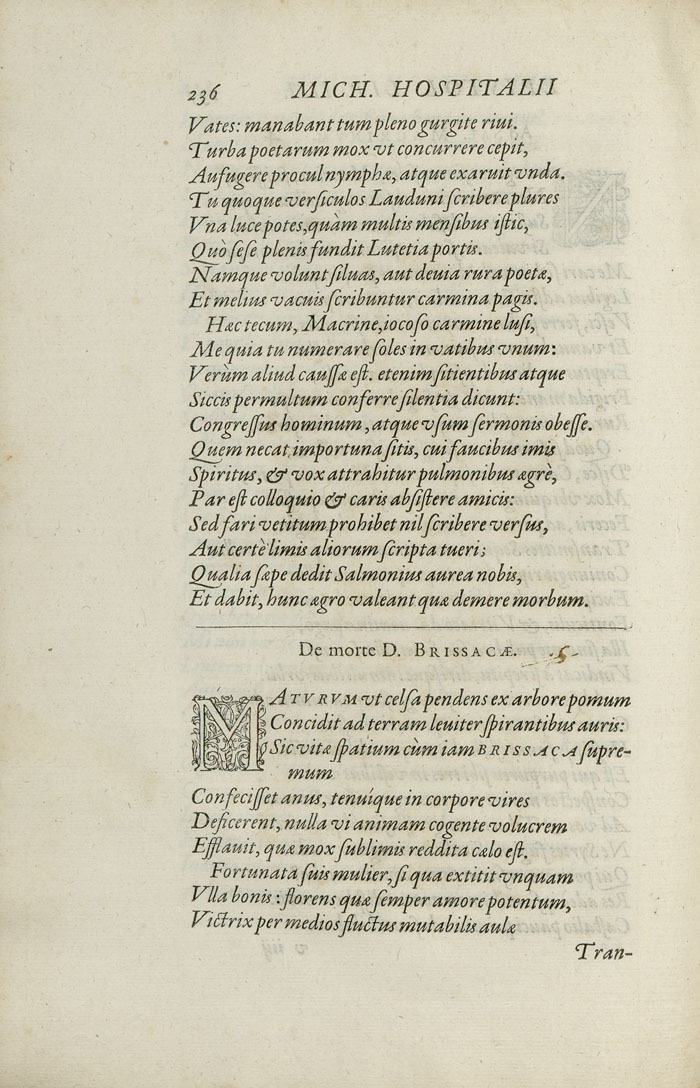 236 MICH. HOSPITALII
Vates: manabant tum pleno gurgite riui.
Turba poetarum mox vt concurrere cepit,
Aufugere procul nymphæ, atque exaruit vnda.
Tu quoque versiculos Lauduni scribere plures
Vna luce potes, quàm multis mensibus istic,
Quò sese plenis fundit Lutetia portis.
Namque volunt siluas, aut deuia rura poetæ,
Et melius vacuis scribuntur carmina pagis.
Hæc tecum, Macrine, iocoso carmine lusi,
Me quia tu numerare soles in vatibus vnum:
Verùm aliud caussæ est. etenim sitientibus atque
Siccis permultum conferre silentia dicunt:
Congressus hominum, atque vsum sermonis obesse.
Quem necat importuna sitis, cui faucibus imis
Spiritus, & vox attrahitur pulmonibus ægrè,
Par est colloquio & caris absistere amicis:
Sed fari vetitum prohibet nil scribere versus,
Aut certè limis aliorum scripta tueri;
Qualia sæpe dedit Salmonius aurea nobis,
Et dabit, hunc ægro valeant quæ demere morbum.
De morte D. BRISSACÆ. .5-
MATVRVM vt celsa pendens ex arbore pomum
Concidit ad terram leuiter spirantibus auris:
Sic vitæ spatium cùm iam BRISSACA supre-
mum
Confecisset anus, tenuíque in corpore vires
Deficerent, nulla vi animam cogente volucrem
Efflauit, quæ mox sublimis reddita cælo est.
Fortunata suis mulier, si qua extitit vnquam
Vlla bonis: florens quæ semper amore potentum,
Victrix per medios fluctus mutabilis aulæ
Tran-